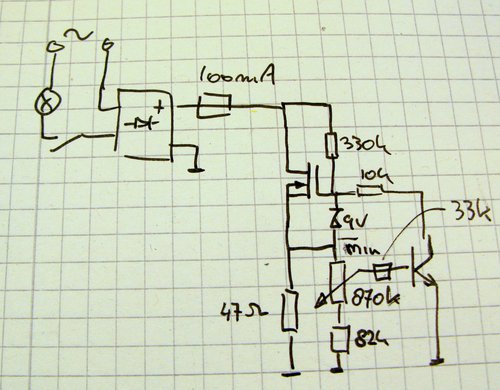 ~
100mA
+
330k
10k
9V
33k
min
870k
47Ω
82k